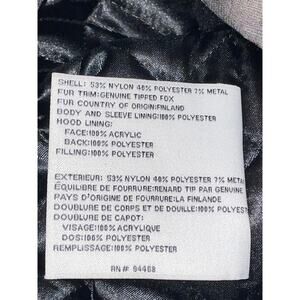 SHELL: 53% NYLON 40% POLYESTER 7% METAL
FUR TRIM:GENUINE TIPPED FOX
FUR COUNTRY OF ORIGIN:FINLAND
BODY AND SLEEVE LINING:100% POLYESTER
HOOD LINING:
FACE:100% ACRYLIC
BACK:100% POLYESTER
FILLING:100% POLYESTER
EXTERIEUR: 53% NYLON 40% POLYESTER 7% META
ÉQUILIBRE DE FOURRURE:RENARD TIP PAR GENUINE
PAYS D'ORIGINE DE FOURRURE:LA FINLANDE
DOUBLURE DE CORPS ET DE DOUILLE:100% POLYEST
DOUBLURE DE CAPOT:
VISAGE:100% ACRYLIQUE
DOS:100% POLYESTER
REMPLISSAGE:100% POLYESTER
RN# 94468